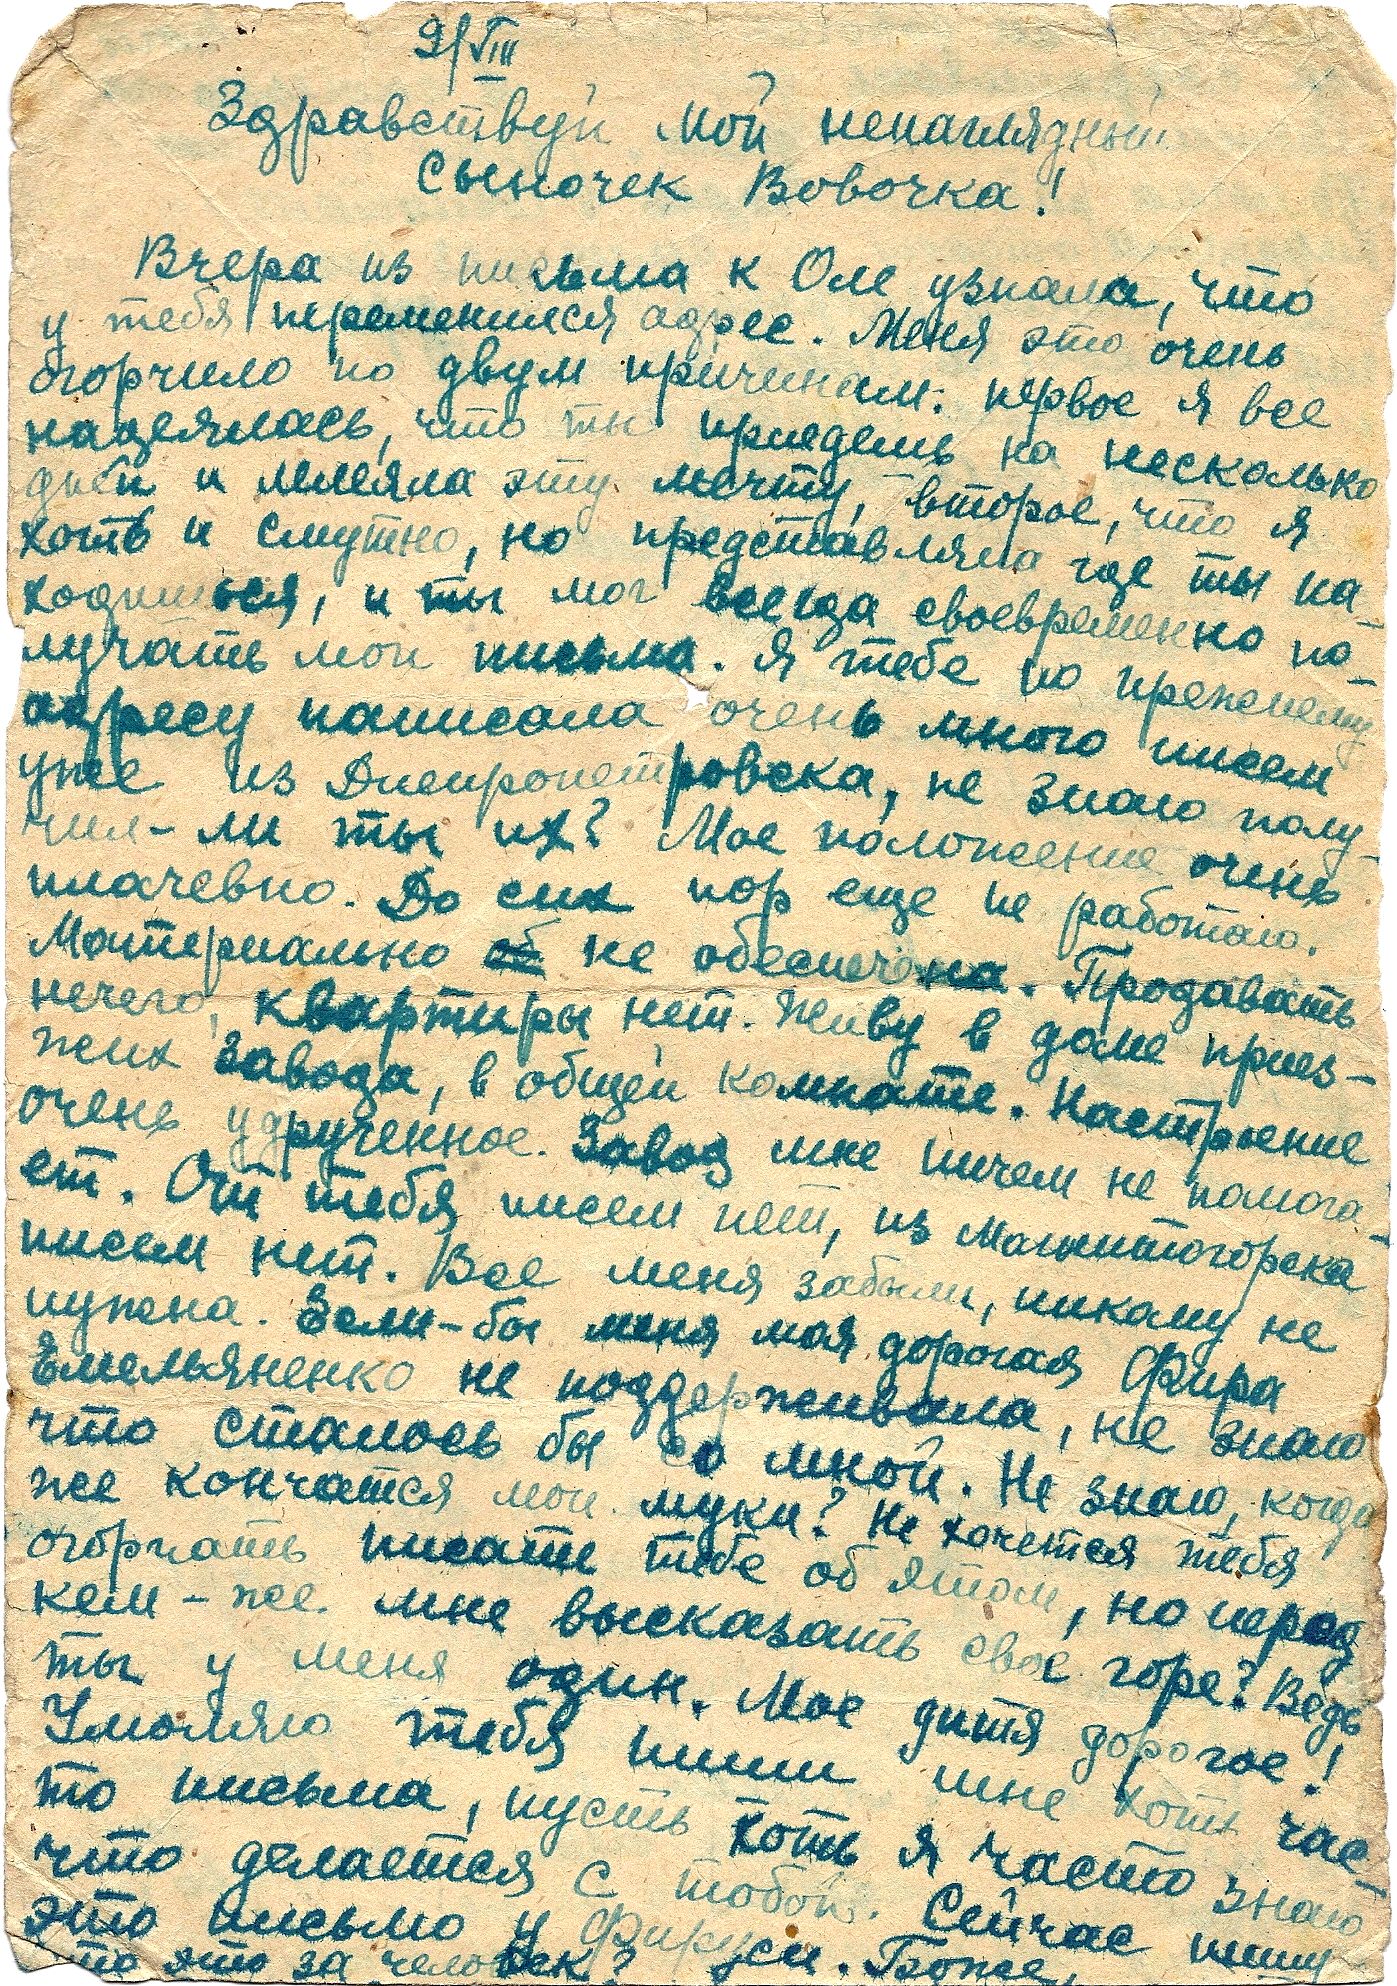 9/VIII
Здравствуй мой ненаглядный
Сыночек Вовочка!
Вчера из письма к Оле узнала, что
у тебя переменился адрес. Меня это очень
огорчило по двум причинам: первое я все
надеялась, что ты приедешь на несколько
дней и лелеяла эту мечту, второе, что я
хоть и смутно, но представляла где ты на-
ходишься, и ты мог всегда своевременно по-
лучать мои письма. Я тебе по прежнему
адресу написала очень много писем
уже из Днепропетровска, не знаю полу-
чил-ли ты их? Мое положение очень
плачевно. До сих пор еще не работаю.
Материально об не обеспечена. Продавать
нечего, квартиры нет. Живу в доме приез-
жих завода, в общей комнате. Настроение
очень удрученное. Завод мне ничем не помога-
ет. От тебя писем нет, из Магнитогорска
писем нет. Все меня забыли, никому не
нужна. Если-бы меня моя дорогая Фира
Емельяненко не поддерживала, не знаю
что сталось бы со мной. Не знаю, когда
же кончатся мои муки? Не хочется тебя
огорчать писать тебе об этом, но перед
кем-же мне высказать свое горе? Ведь
ты у меня один. Мое дитя дорогое!
Умоляю тебя пиши мне хоть час-
то письма, пусть хоть я часто знаю
что делается с тобой. Сейчас пишу
это письмо у Фируси. Боже,
что это за человек?